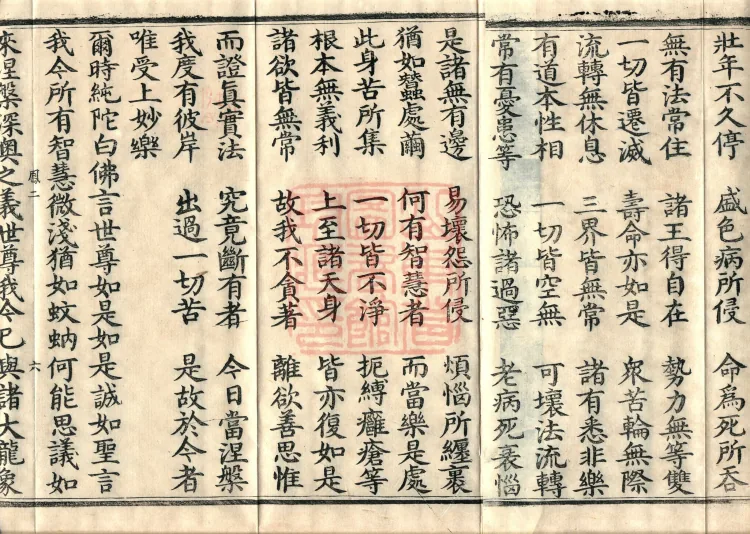 壯年不久停 盛色病所侵 命爲死所吞
無有法常住 諸王得自在 勢力無等雙
一切皆遷滅 壽命亦如是 衆苦輪無際
流轉無休息 三界皆無常 諸有悉非樂
有道本性相 一切皆空無 可壞法流轉
常有憂患等 恐怖諸過惡 老病死衰惱
是諸無有邊 易壞怨所侵 煩惱所纏裹
猶如蠶處繭 何有智慧者 而當樂是處
此身苦所集 一切皆不淨 扼縛癰瘡等
根本無義利 上至諸天身 皆亦復如是
諸欲皆無常 故我不貪著 離欲善思惟
而證眞實法 究竟斷有者 今日當涅槃
我度有彼岸 出過一切苦 是故於今者
唯受上妙樂
爾時純陀白佛言世尊如是如是誠如聖言
我今所有智慧微淺猶如蚊蚋何能思議如
鳳二 六
來涅槃深奧之義世尊我今已與諸大龍象